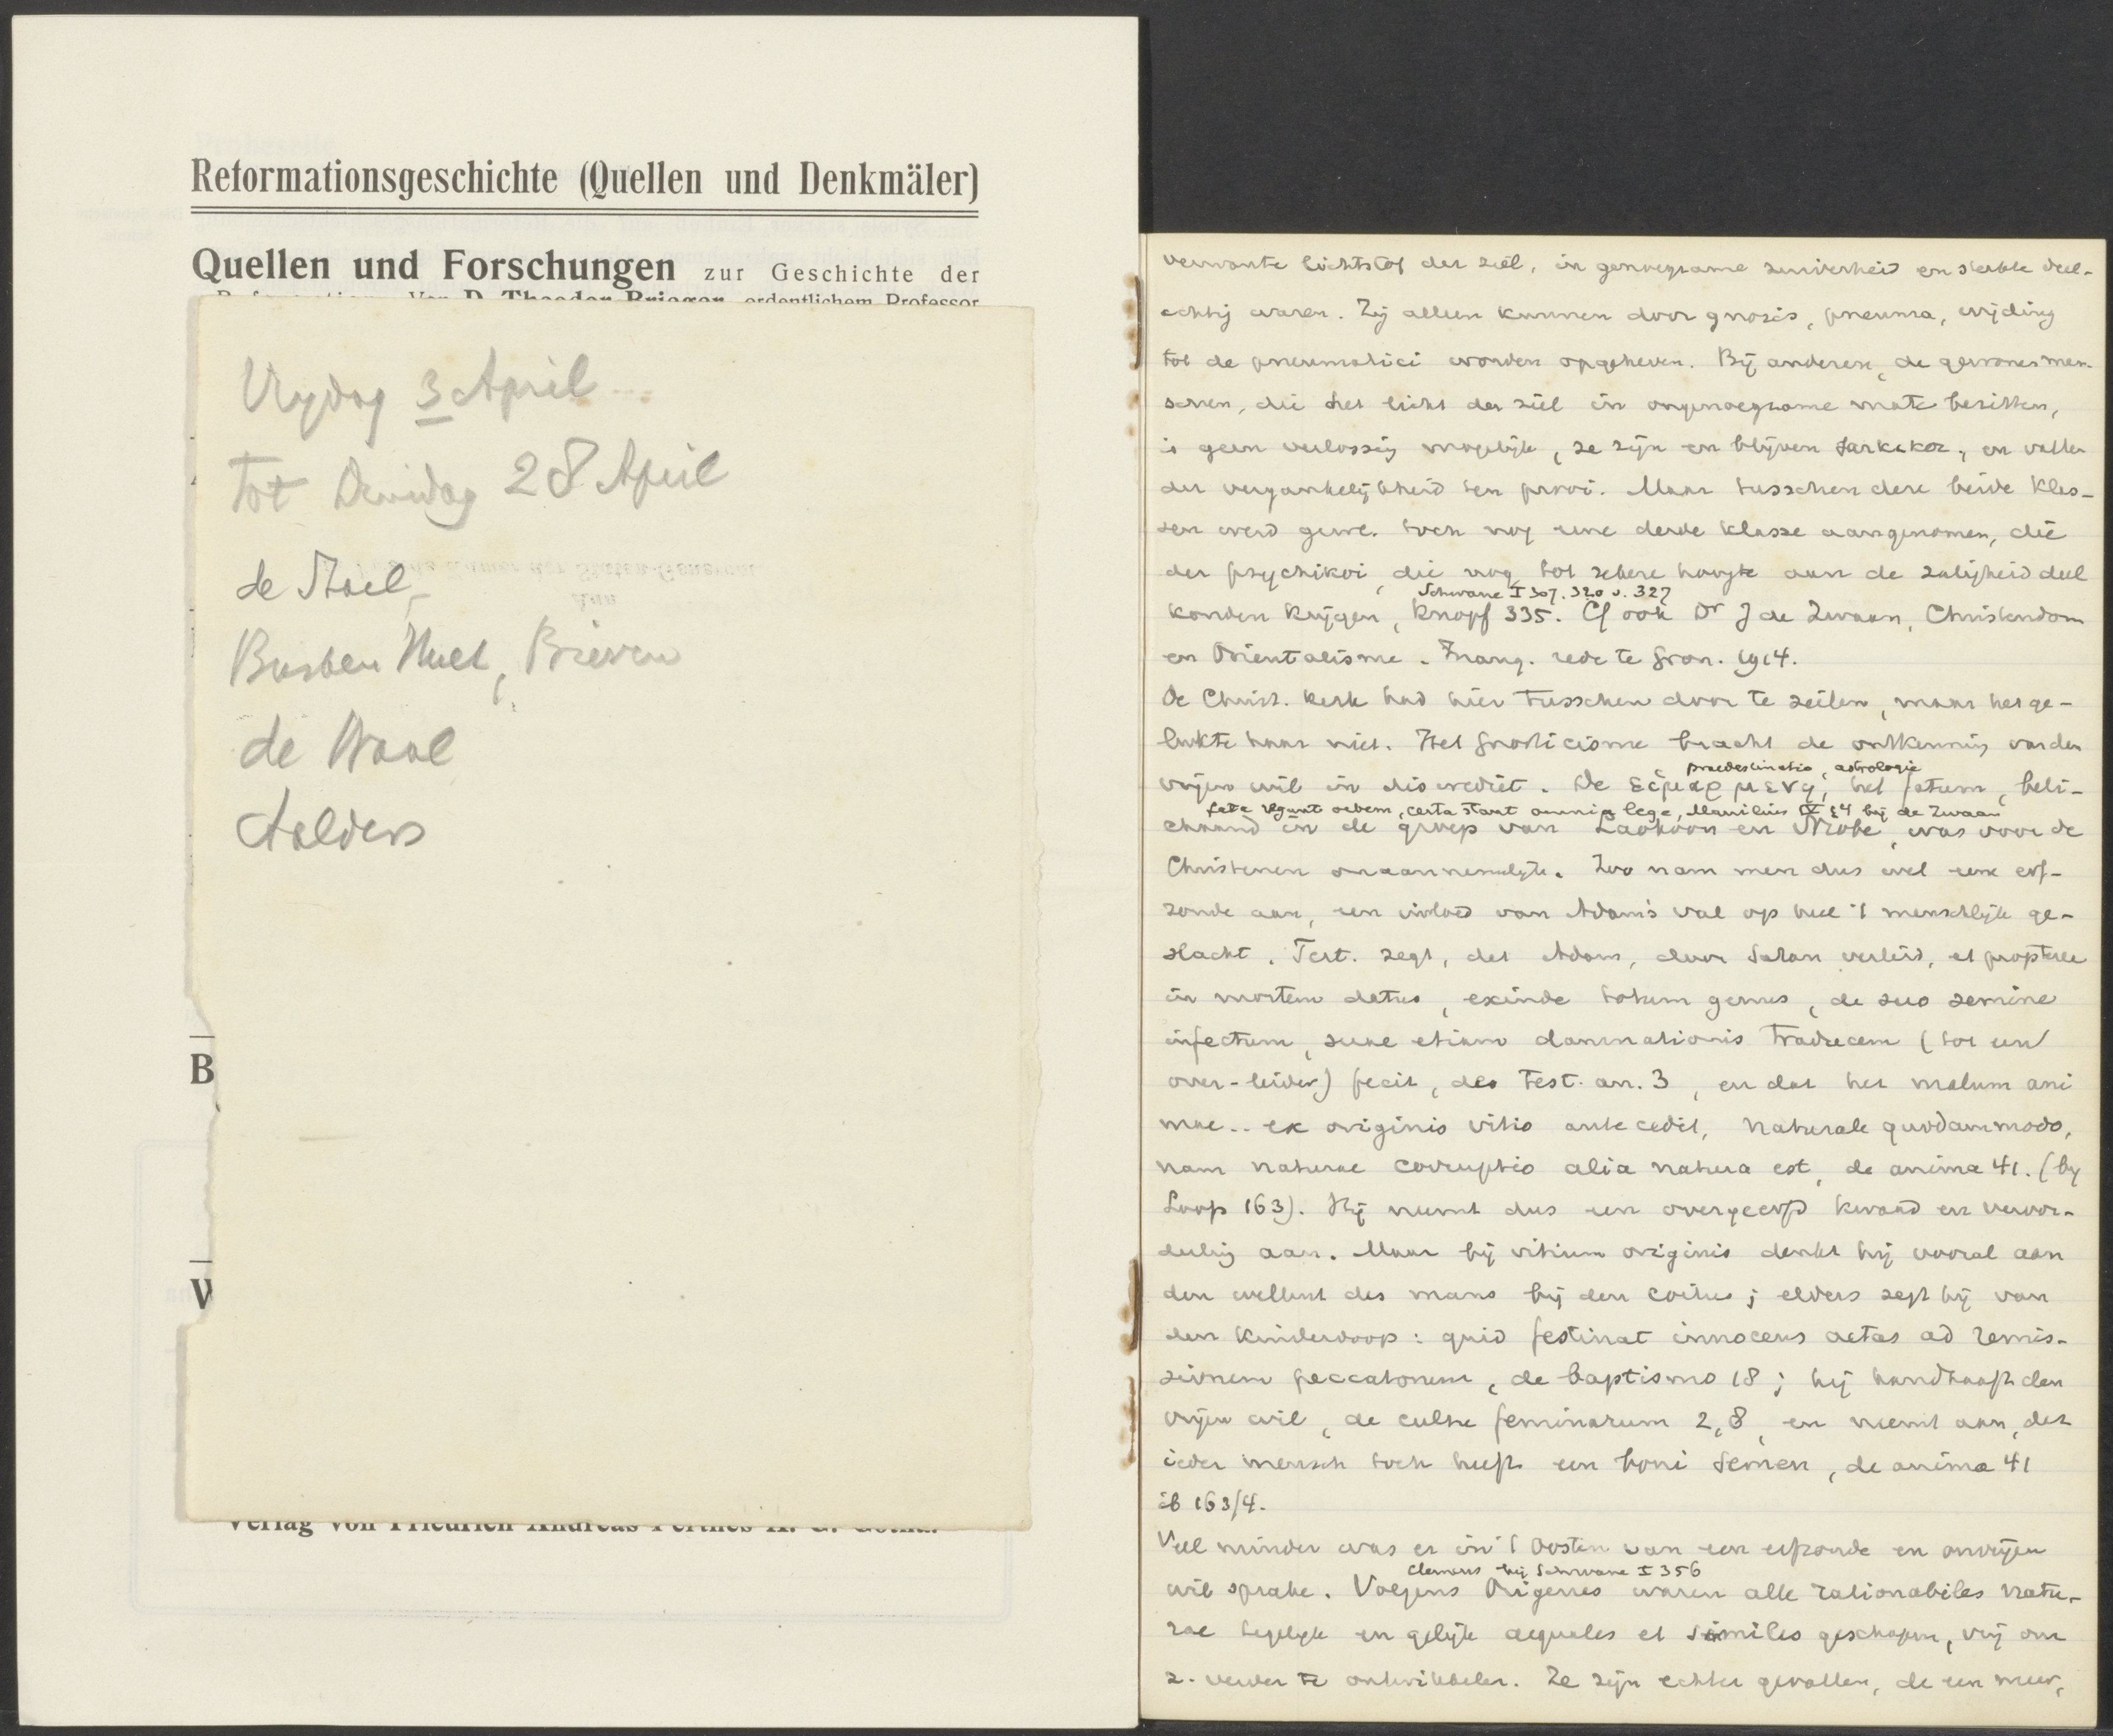 Reformationsgeschichte (Quellen und Denkmäler)
Quellen und Forschungen zur Geschichte der
Reformation. Von D. Theodor Brieger, ordentlichem Professor
Vrydag 3 April
tot Dinsdag 28 April
de Stael,
Busken Huet, Brieven
de Waal
Aalders
B
V
Verlag von Friedrich Andreas Perthes A. G. Gotha.
verwante lichtstof der ziel, in genoegzame zuiverheid en sterkte deel-
achtig waren. Zij alleen kunnen door gnosis, pneuma, wijding
tot de pneumatici worden opgeheven. Bij anderen, de gewone men-
schen, die het licht der ziel in ongenoegzame mate bezitten,
is geen verlossing mogelijk, ze zijn en blijven sarkikoi, en vallen
der vergankelijkheid ten prooi. Maar tusschen deze beide klas-
sen werd gew. toch nog eene derde klasse aangenomen, die
der psychikoi, die nog tot zekere hoogte aan de zaligheid deel
Schwane I 307. 320 v. 327
konden krijgen, Knopf 335. Cf ook Dr J de Zwaan, Christendom
en Orientalisme. Inaug. rede te Gron. 1914.
De Christ. kerk had hier tusschen door te zeilen, maar het ge-
lukte haar niet. Het Gnosticisme bracht de ontkenning van den
praedestinatie, astrologie
vrijen wil in discrediet. De εἱμαρμενη, het fatum, beli-
fata regunt orbem, certa stant omnia lege, Manilius IV 14 bij de Zwaan
chaamd in de groep van Laokoon en Niobe, was voor de
Christenen onaannemelijk. Zoo nam men dus wel eene erf-
zonde aan, een invloed van Adam's val op heel 't menschlijk ge-
slacht. Tert. zegt, dat Adam, door Satan verleid, et propterea
in mortem datus, exinde totum genus, de suo semine
infectum, suae etiam damnationis traducem (tot een
over-leider) fecit, de test. an. 3, en dat het malum ani
mae.. ex originis vitio antecedit, naturale quodammodo,
nam naturae corruptio alia natura est, de anima 41. (bij
Loofs 163). Hij neemt dus een overgeerfd kwaad en veroor-
deeling aan. Maar bij vitium originis denkt hij vooral aan
den wellust des mans bij den coitus; elders zegt hij van
den kinderdoop: quid festinat innocens aetas ad remis-
sionem peccatorum, de baptismo 18; hij handhaaft den
vrijen wil, de cultu feminarum 2,8, en neemt aan, dat
ieder mensch toch heeft een boni semen, de anima 41
ib 163/4.
Veel minder was er in 't Oosten van een erfzonde en onvrijen
Clemens bij Schwane I 356
wil sprake. Volgens Origenes waren alle rationabiles natu-
rae tegelijk en gelijk aequales et similes geschapen, vrij om
z. verder te ontwikkelen. Ze zijn echter gevallen, de een meer,